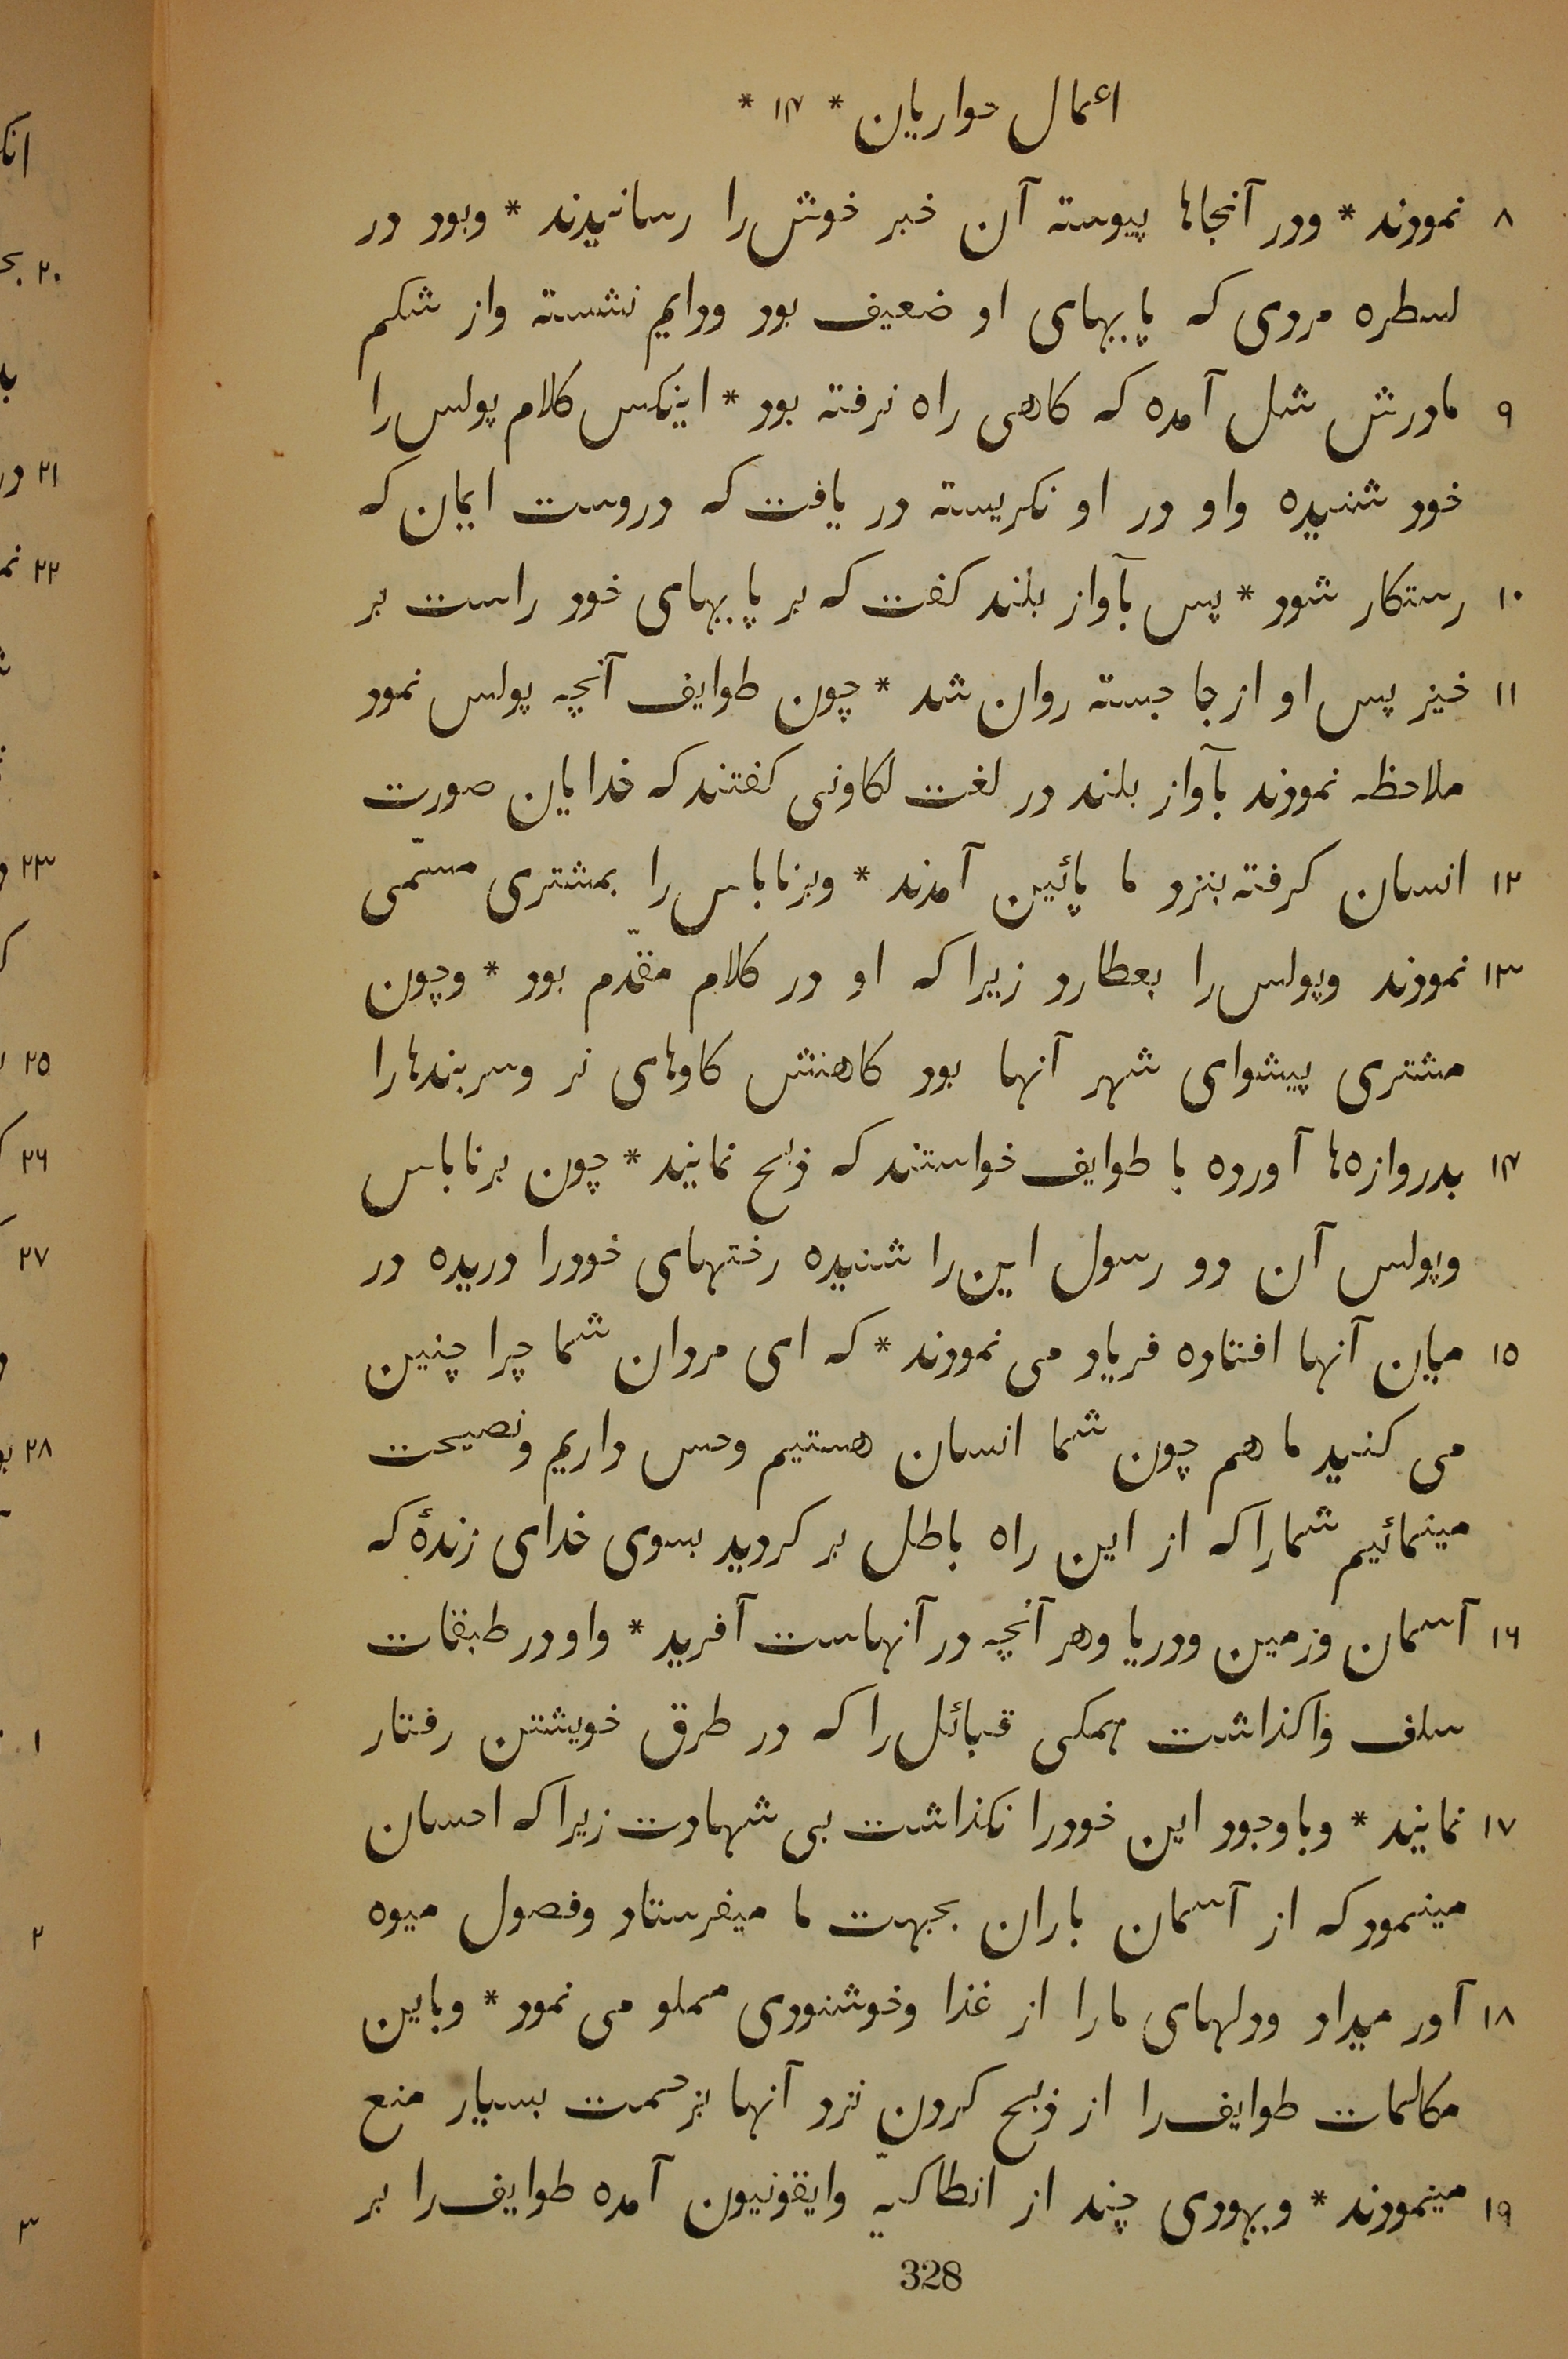 اعمال حواریان * ۱۴ *
۸ نمودند * ودر آنجاها پیوسته آن خبر خوش را رسانیدند * وبود در
لسطره مردی که پایهای او ضعیف بود ودایم نشسته واز شکم
۹ مادرش شل آمده که کاهی راه نرفته بود * اینکس کلام پولس را
خود شنیده واو در او نکریسته در یافت که دروست ایمان که
۱۰ رستکار شود * پس بآواز بلند کفت که بر پایهای خود راست بر
۱۱ خیز پس او از جا جسته روان شد * چون طوایف آنچه پولس نمود
ملاحظه نمودند بآواز بلند در لغت لکاونی کفتند که خدایان صورت
۱۲ انسان کرفته بنزد ما پائین آمدند * وبرناباس را بمشتری مسمّی
۱۳ نمودند وپولس را بعطارد زیرا که او در کلام مقدّم بود * وچون
مشتری پیشوای شهر آنها بود کاهنش کاوهای نر وسربندها را
۱۴ بدروازه‌ها آورده با طوایف خواستند که ذبح نمایند * چون برناباس
وپولس آن دو رسول این را شنیده رختهای خودرا دریده در
۱۵ میان آنها افتاده فریاد می نمودند * که ای مردان شما چرا چنین
می کنید ما هم چون شما انسان هستیم وحس داریم ونصیحت
مینمائیم شمارا که از این راه باطل بر کردید بسوی خدای زندهٔ که
۱۶ آسمان وزمین ودریا وهر آنچه در آنهاست آفرید * واو در طبقات
سلف واکذاشت همکی قبائل را که در طرق خویشتن رفتار
۱۷ نمایند * وباوجود این خودرا نکذاشت بی شهادت زیرا که احسان
مینمود که از آسمان باران بجهت ما میفرستاد وفصول میوه
۱۸ آور میداد ودلهای مارا از غذا وخوشنودی مملو می نمود * وباین
مکالمات طوایف را از ذبح کردن نزد آنها بزحمت بسیار منع
۱۹ مینمودند * ویهودی چند از انطاکیّه وایقونیون آمده طوایف را بر
328